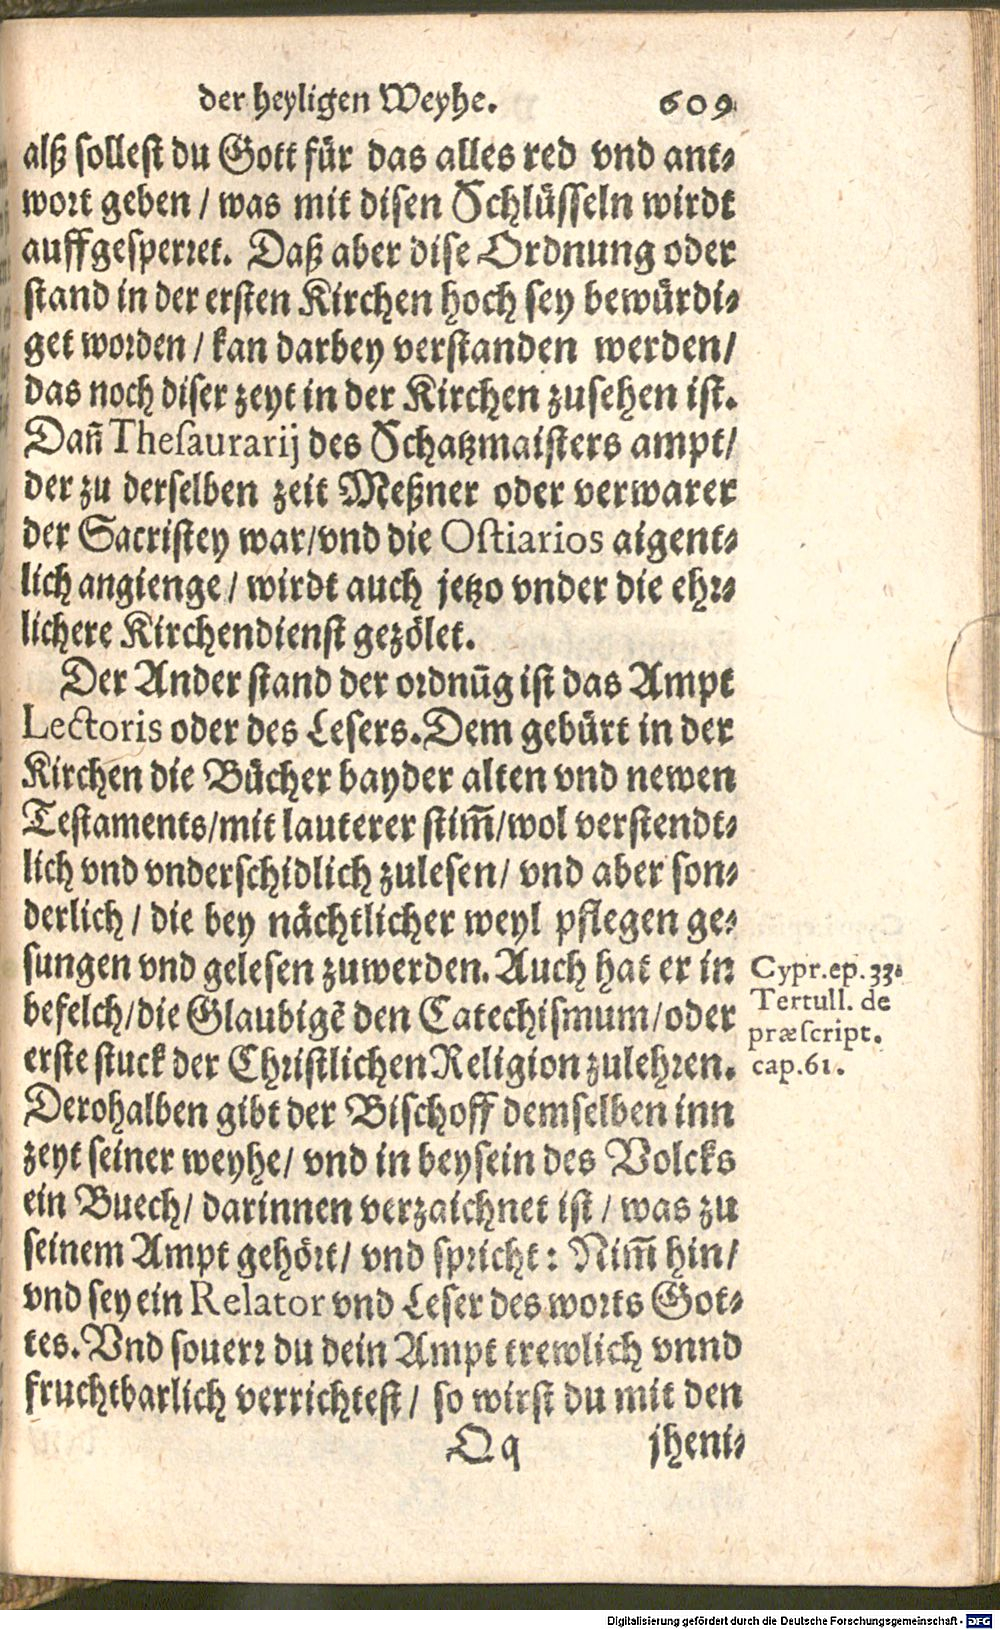 der heyligen Weyhe. 609
alß sollest du Gott für das alles red vnd ant⸗
wort geben / was mit disen Schlüsseln wirdt
auffgesperret. Daß aber dise Ordnung oder
stand in der ersten Kirchen hoch sey bewürdi⸗
get worden / kan darbey verstanden werden/
das noch diser zeyt in der Kirchen zusehen ist.
Dañ Thesaurarij des Schatzmaisters ampt/
der zu derselben zeit Meßner oder verwarer
der Sacristey war/vnd die Ostiarios aigent⸗
lich angienge / wirdt auch jetzo vnder die ehr⸗
lichere Kirchendienst gezölet.
Der Ander stand der ordnūg ist das Ampt
Lectoris oder des Lesers. Dem gebürt in der
Kirchen die Bücher bayder alten vnd newen
Testaments/mit lauterer stim̄/wol verstendt⸗
lich vnd vnderschidlich zulesen/ vnd aber son⸗
derlich / die bey nächtlicher weyl pflegen ge⸗
sungen vnd gelesen zuwerden. Auch hat er in
befelch/die Glaubigẽ den Catechismum/oder
erste stuck der Christlichen Religion zulehren.
Derohalben gibt der Bischoff demselben inn
zeyt seiner weyhe/ vnd in beysein des Volcks
ein Buech/ darinnen verzaichnet ist / was zu
seinem Ampt gehört/ vnd spricht: Nim̄ hin/
vnd sey ein Relator vnd Leser des worts Got⸗
tes. Vnd souerr du dein Ampt trewlich vnnd
fruchtbarlich verrichtest / so wirst du mit den
Qq jheni⸗
Cypr. ep. 33.
Tertull. de
præscript.
cap. 61.
Digitalisierung gefördert durch die Deutsche Forschungsgemeinschaft - DFG